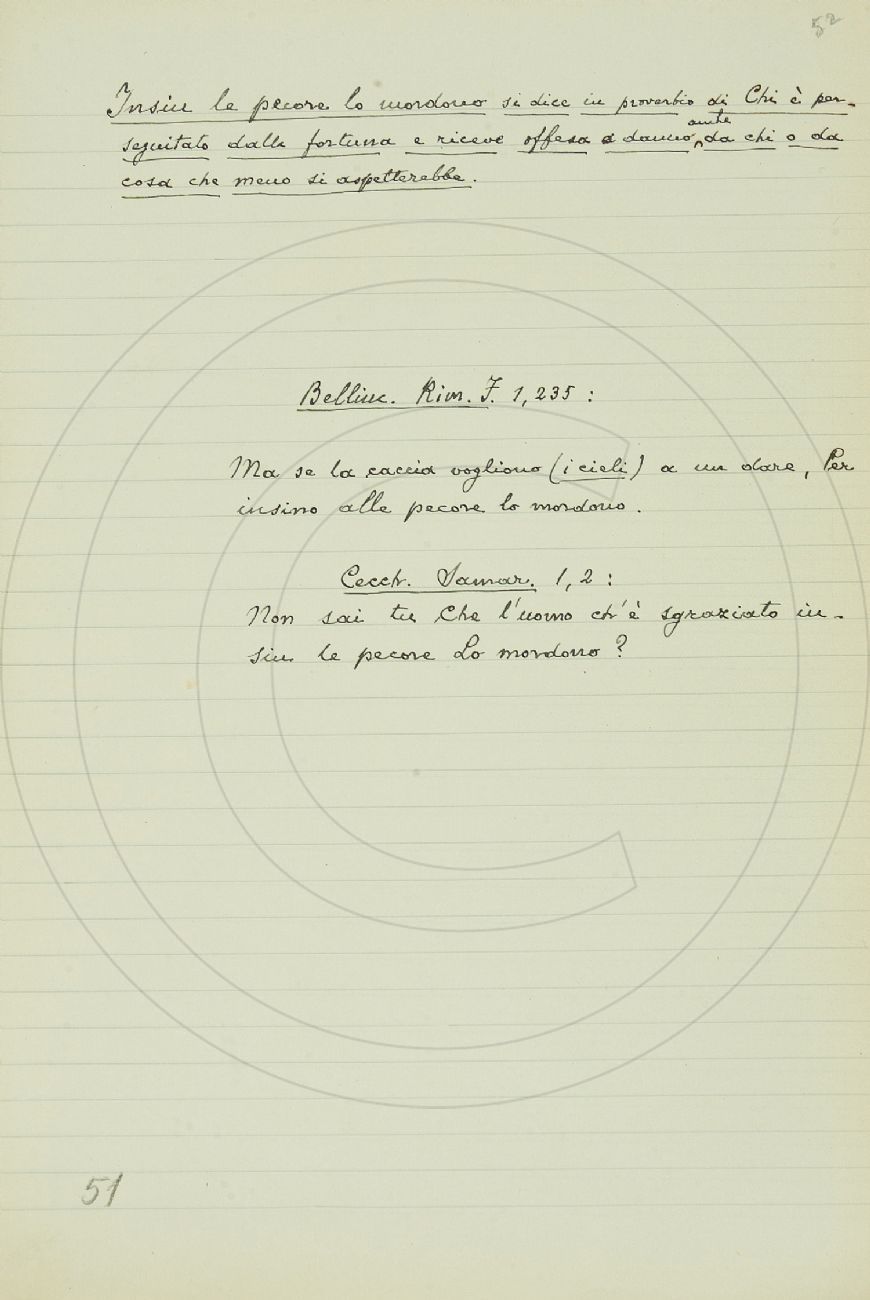 52
Insin le pecore lo mordono si dice in proverbio di Chi è per-
anche
seguitato dalla fortuna e riceve offesa o danno da chi o da
cosa che meno si aspetterebbe.
Bellinc. Rim. F. 1, 235 :
Ma se la caccia vogliono (i cieli) a un dare, Per
insino alle pecore lo mordono.
Cecch. Samar. 1, 2 :
Non sai tu Che l'uomo ch'è sgraziato in-
sin le pecore Lo mordono ?
51